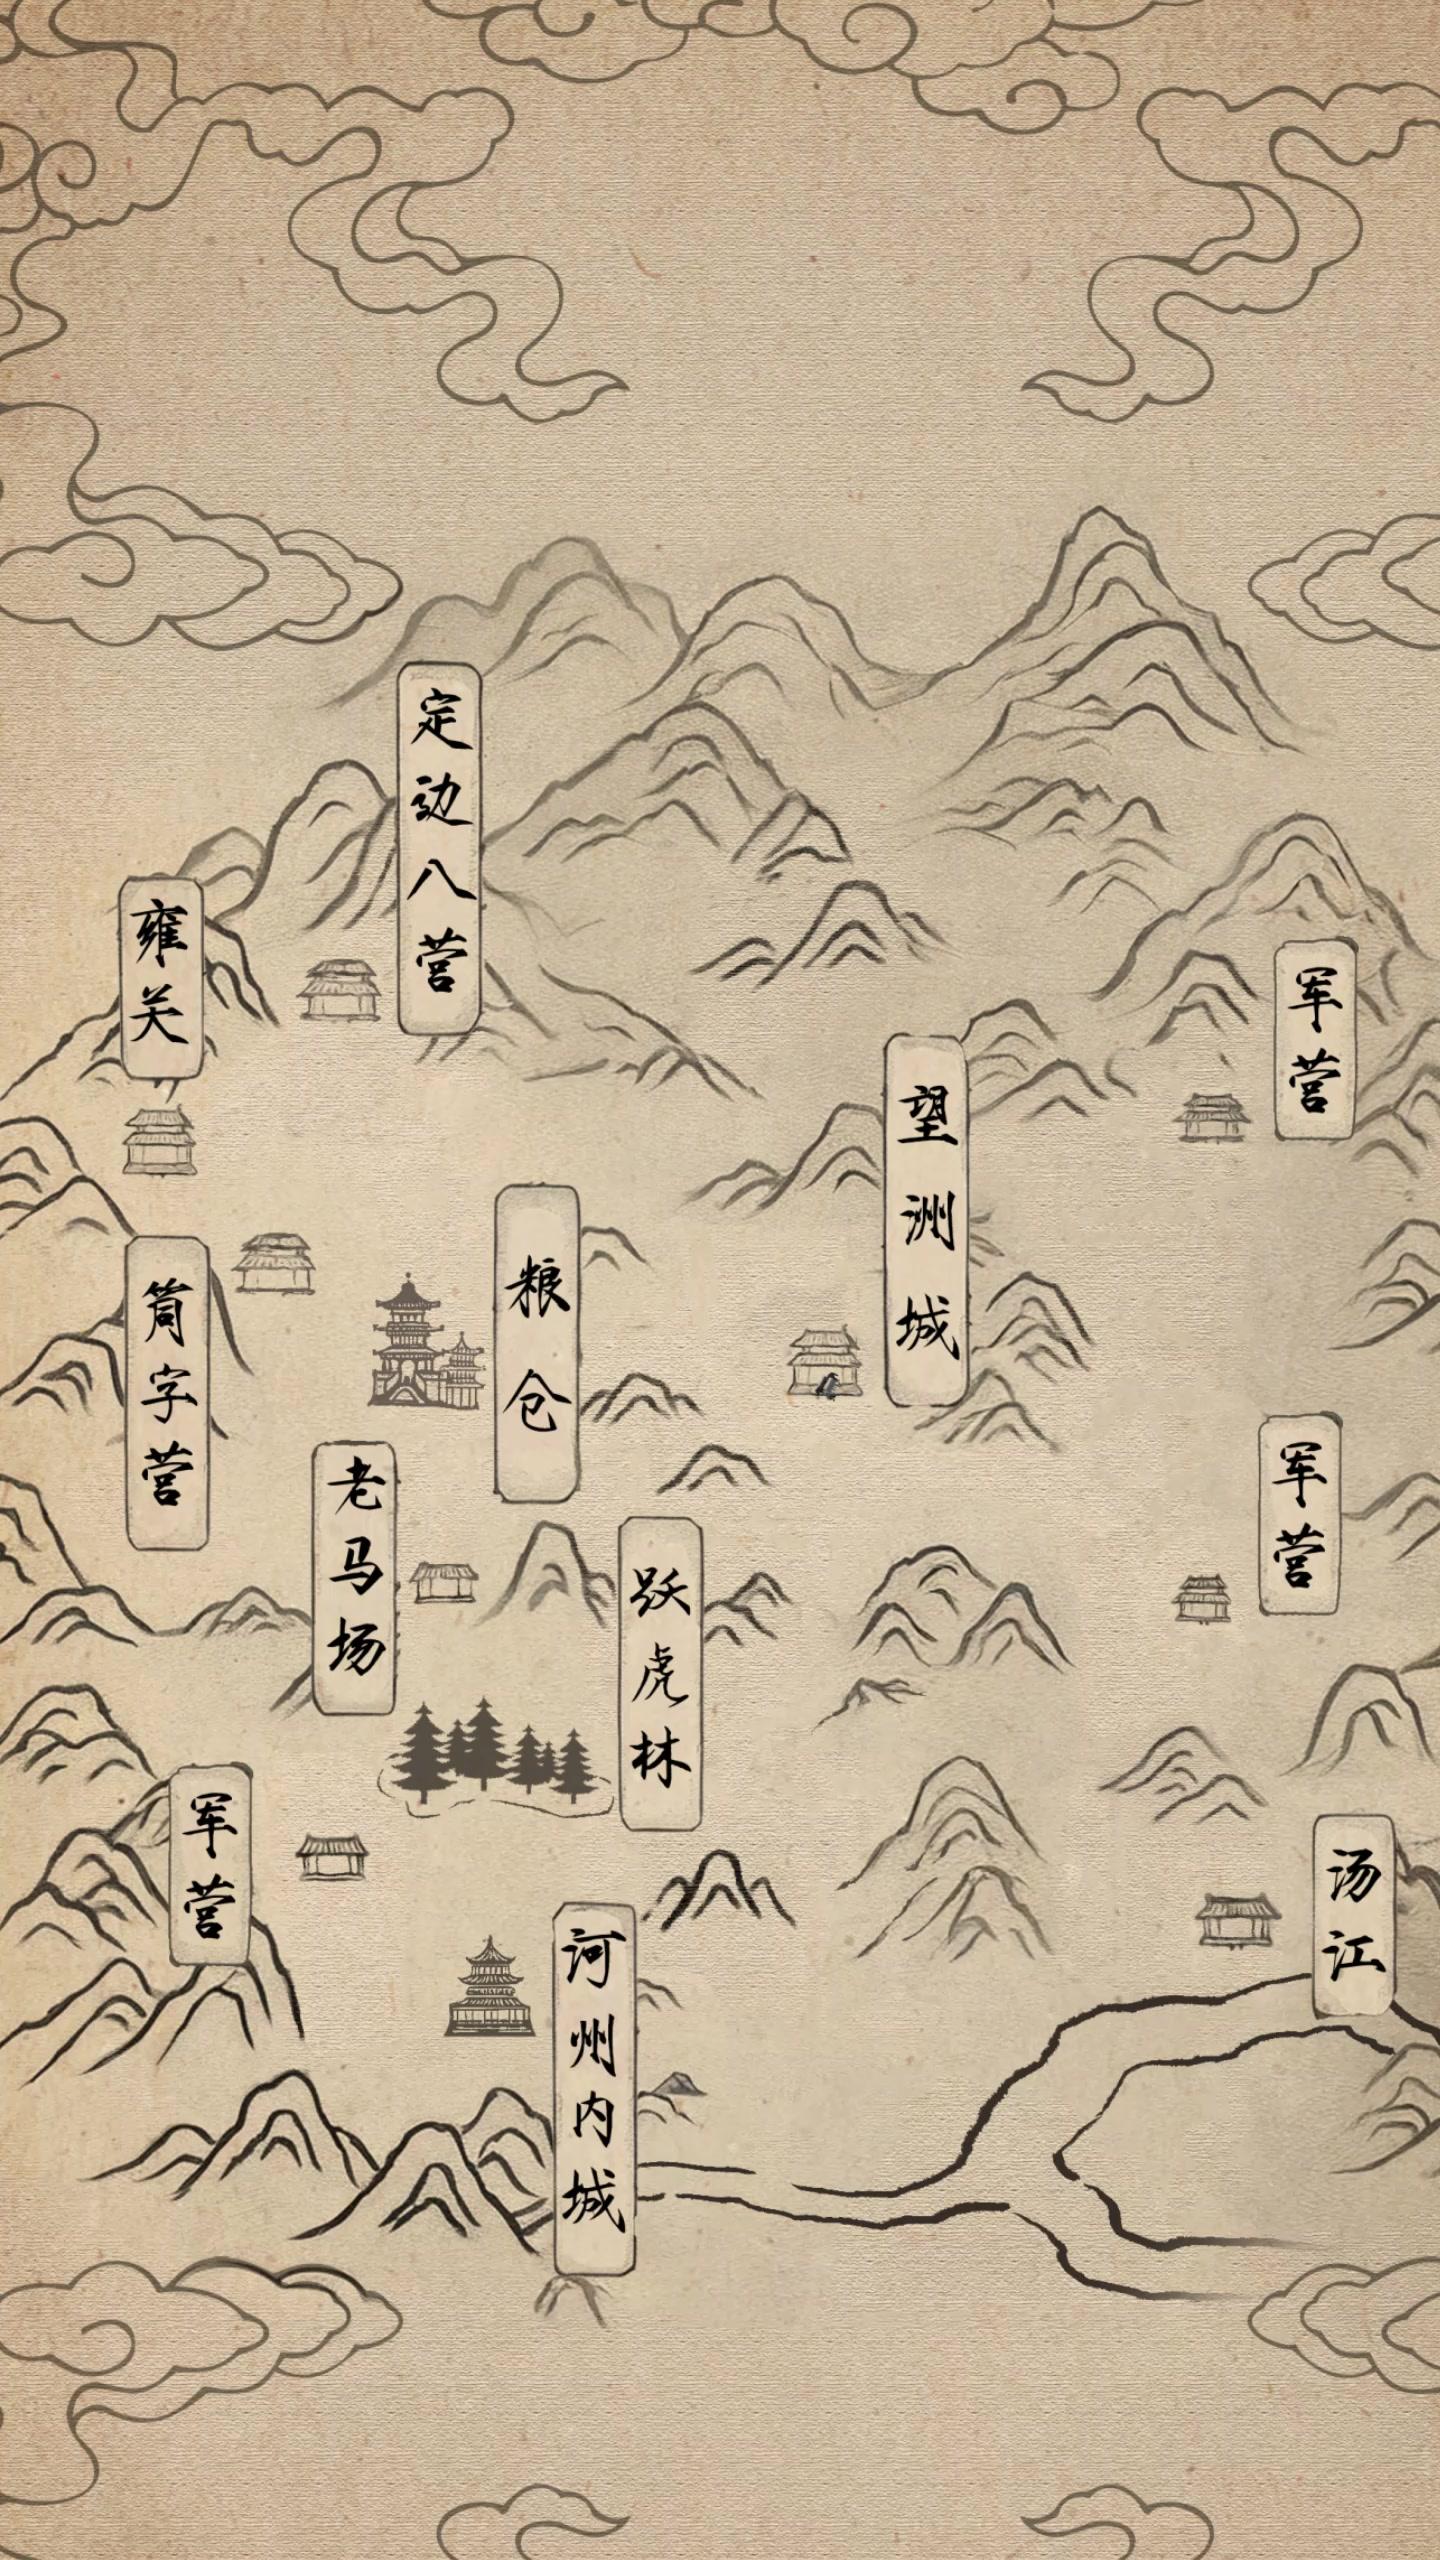 定边八营
雍关
军营
望洲城
粮仓
筒字营
军营
老马场
跃虎林
军营
汤江
河州内城